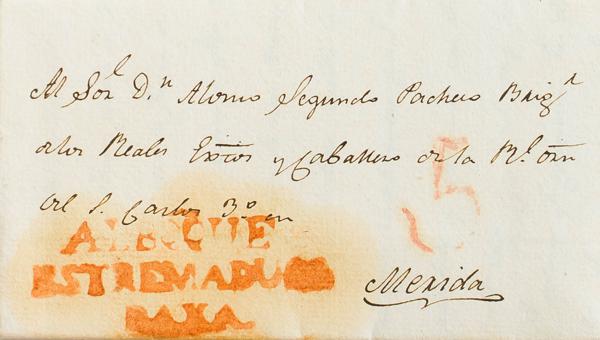 Al Sor. D.n Alonso Segundo Pacheco Brigr
de los Reales Exctos y Caballero de la Rl. orn
del S. Carlos 3.o en
ALBUQUE
ESTREMADURA
BAXA.
5
Merida